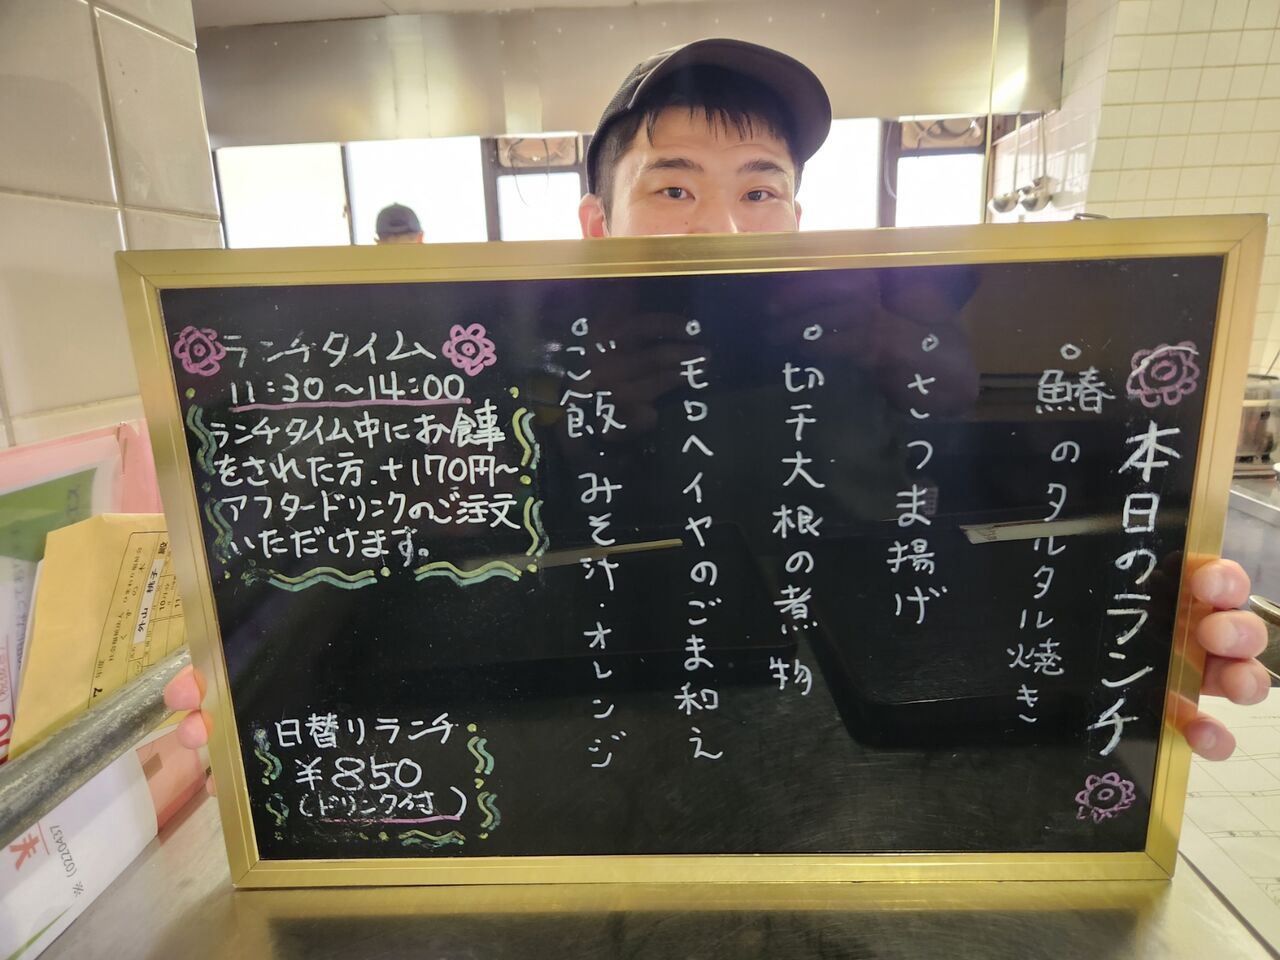 本日のランチ
。鰆のタルタル焼き
。さつま揚げ
。切干大根の煮物
。モロヘイヤのごま和え
。ご飯・みそ汁・オレンジ
ランチタイム
11:30～14:00
ランチタイム中にお食事
をされた方、+170円～
アフタードリンクのご注文
いただけます。
日替りランチ
¥850
(ドリンク付)
外山 桃子
※(0220437